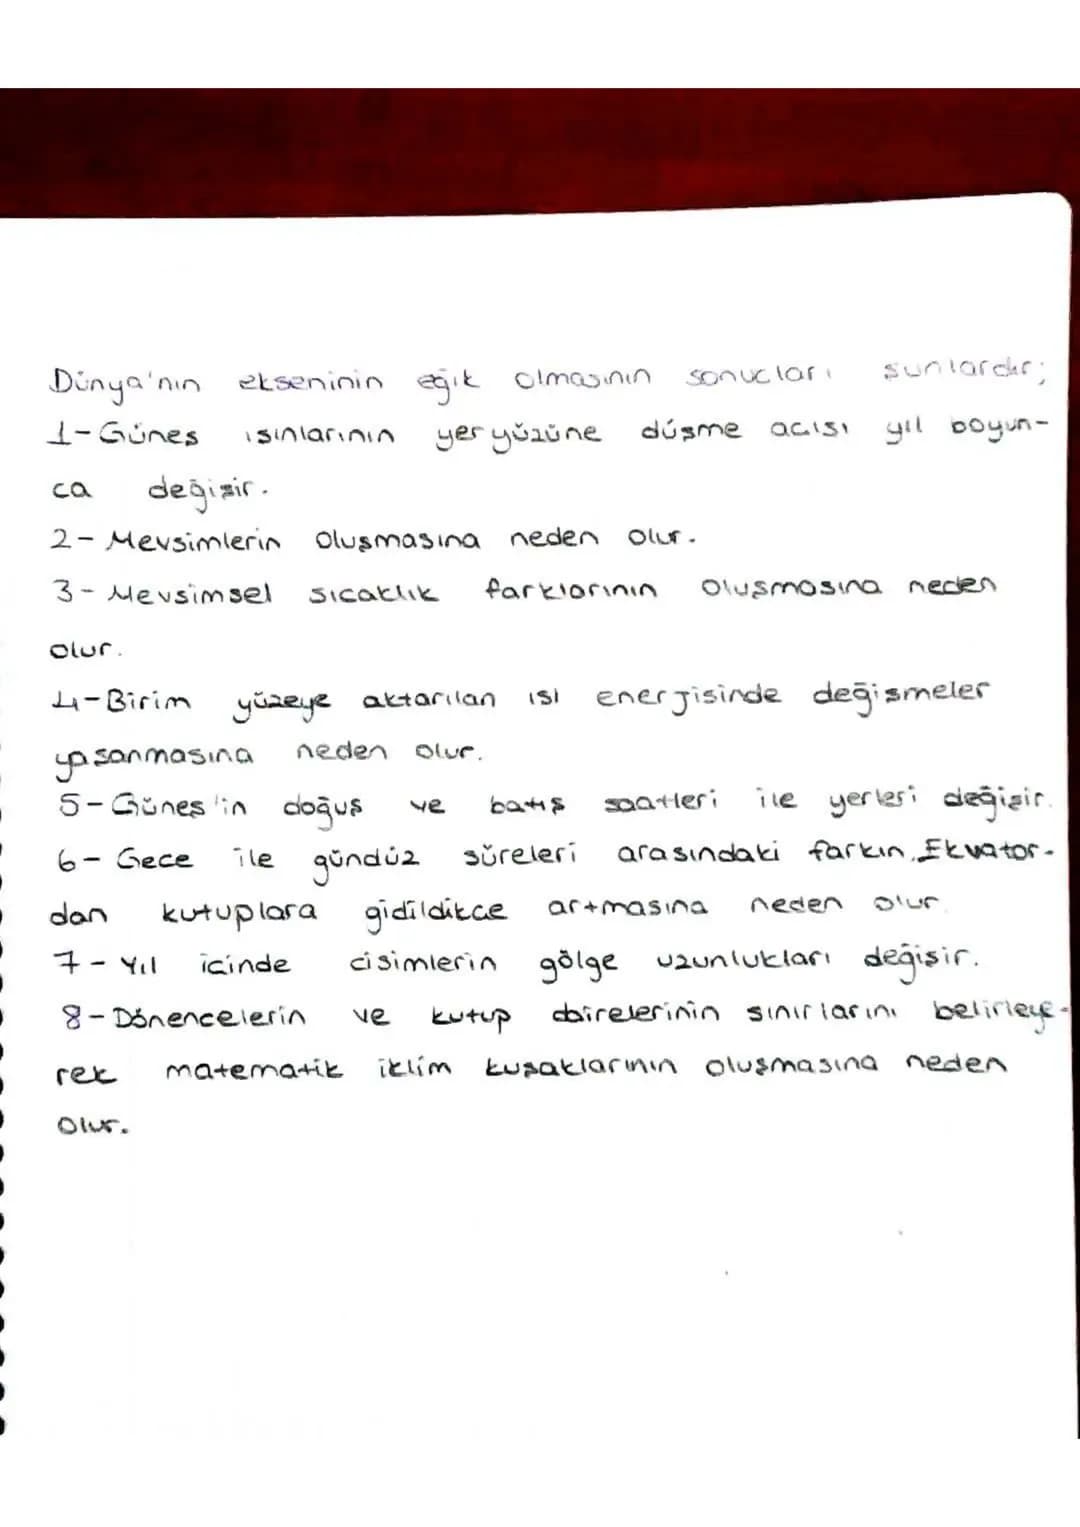 Dünya'nın ekseninin eğik olmasının sonucları sunlardır;
1-Günes ısınlarının yeryüzüne düşme acısı yıl boyun-
ca değişir.
2- Mevsimlerin oluşmasına neden olur.
3- Mevsimsel sıcaklık farklarının oluşmasına neden
olur.
4-Birim yüzeye aktarılan ısı enerjisinde değişmeler
yasanmasına neden olur.
5-Güneş'in doğuş ve batış saatleri ile yerleri değişir.
6- Gece ile gündüz süreleri arasındaki farkın, Ekvator-
dan kutuplara gidildikce artmasına neden olur.
7- Yıl icinde cisimlerin gölge uzunlukları değişir.
8-Dönencelerin ve kutup dairelerinin sınırlarını belirleye-
rek matematik iklim kuşaklarının oluşmasına neden
olur.